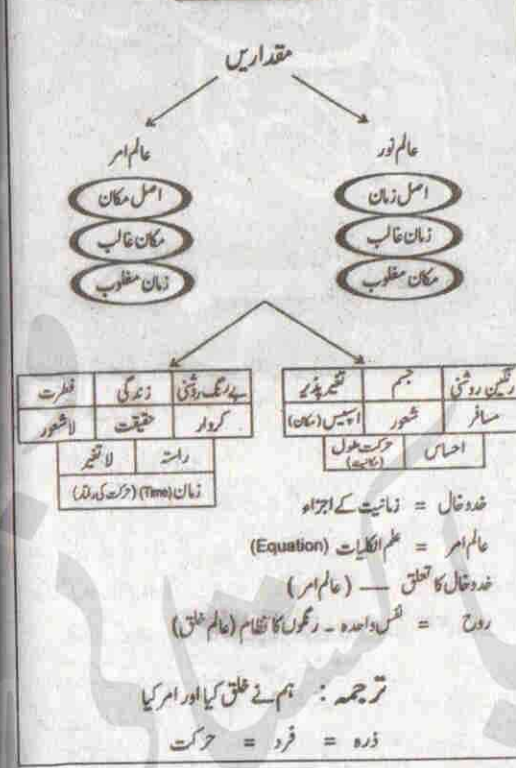 مقداریں
عالم نور
عالم امر
اصل زمان
اصل مکان
زمان غالب
مکان غالب
مکان مغلوب
زمان مغلوب
رنگین روشنی جسم تغیر پذیر
مسافر شعور اسپیس (مکان)
احساس حرکت طول (مکانیت)
بے رنگ روشنی زندگی فطرت
کردار حقیقت لاشعور
راستہ لا تغیر
زمان (Time) (حرکت کی رفتار)
خدوخال = زمانیت کے اجزاء
عالم امر = علم الکلیات (Equation)
خدوخال کا تعلق — (عالم امر)
روح = نفس واحدہ - رنگوں کا نظام (عالم خلق)
ترجمہ : ہم نے خلق کیا اور امر کیا
ذرہ = فرد = حرکت